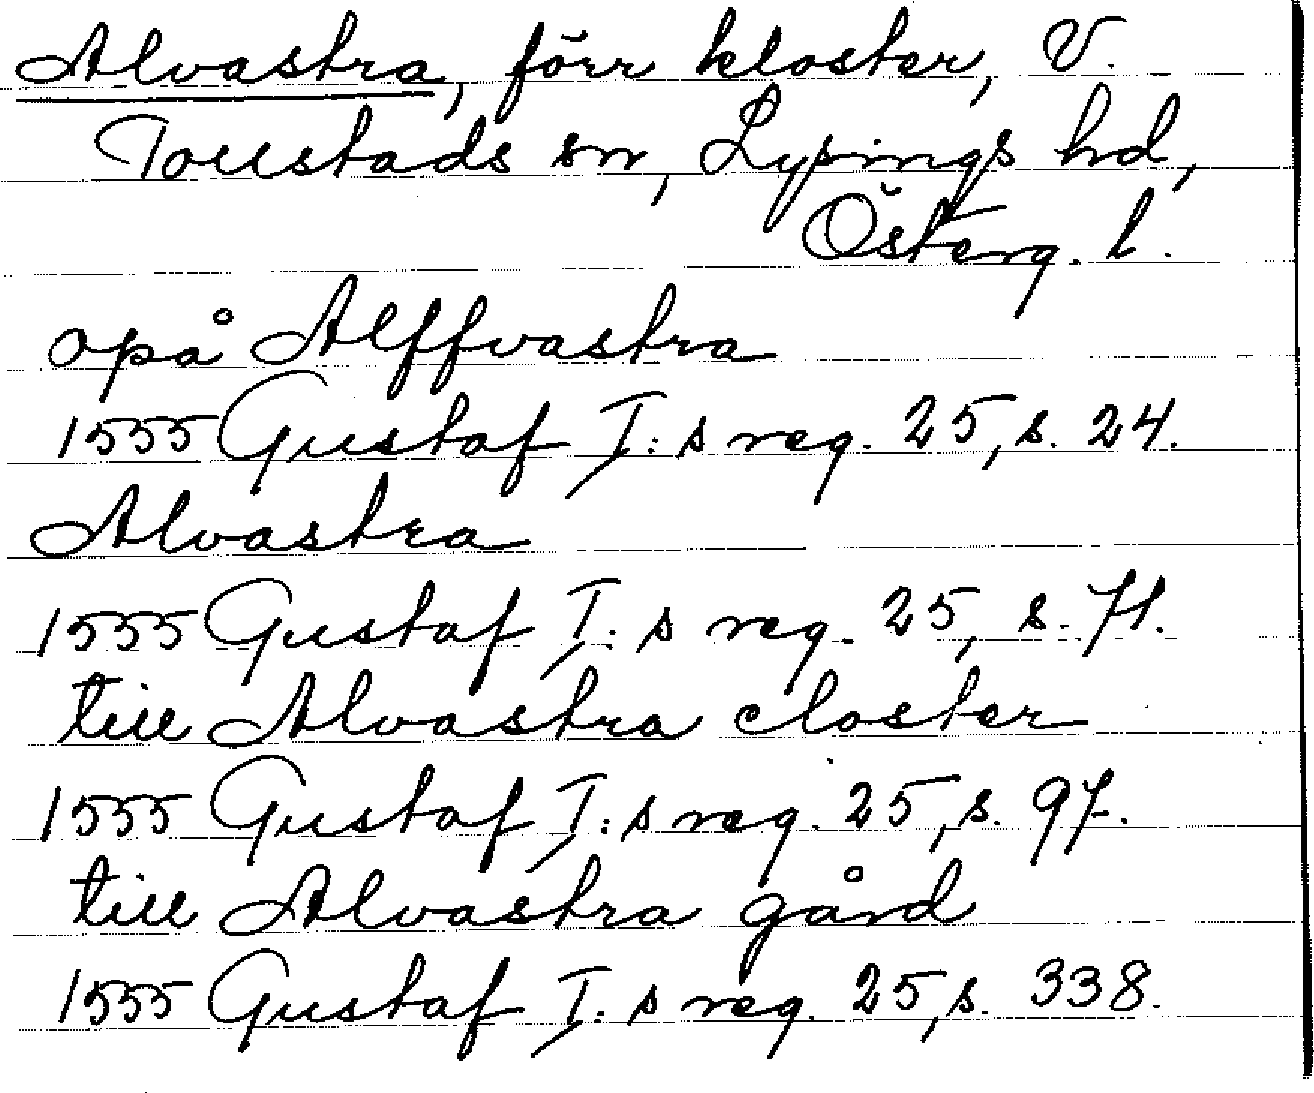 Alvastra, förr kloster, V.
Tollstads sn, Lysings hd,
Österg. l.
opå Alffvastra
1555 Gustaf I:s reg. 25, s. 24.
Alvastra
1555 Gustaf I:s reg. 25, s. 71.
till Alvastra closter
1555 Gustaf I:s reg. 25, s. 97.
till Alvastra gård
1555 Gustaf I:s reg. 25, s. 338.